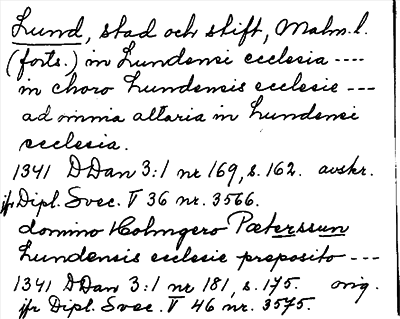 Lund, stad och stift, Malm.l.
(forts.) in Lundensi ecclesia ----
in choro Lundensis ecclesie ---
ad omnia altaria in Lundensi
ecclesia.
1341 DDan 3:1 nr 169, s. 162. avskr.
jfr Dipl. Svec. V 36 nr. 3566.
domino Holmgero Pæterssun
Lundensis ecclesie preposito ---
1341 DDan 3:1 nr 181, s. 175. orig.
jfr Dipl. Svec. V 46 nr. 3575.